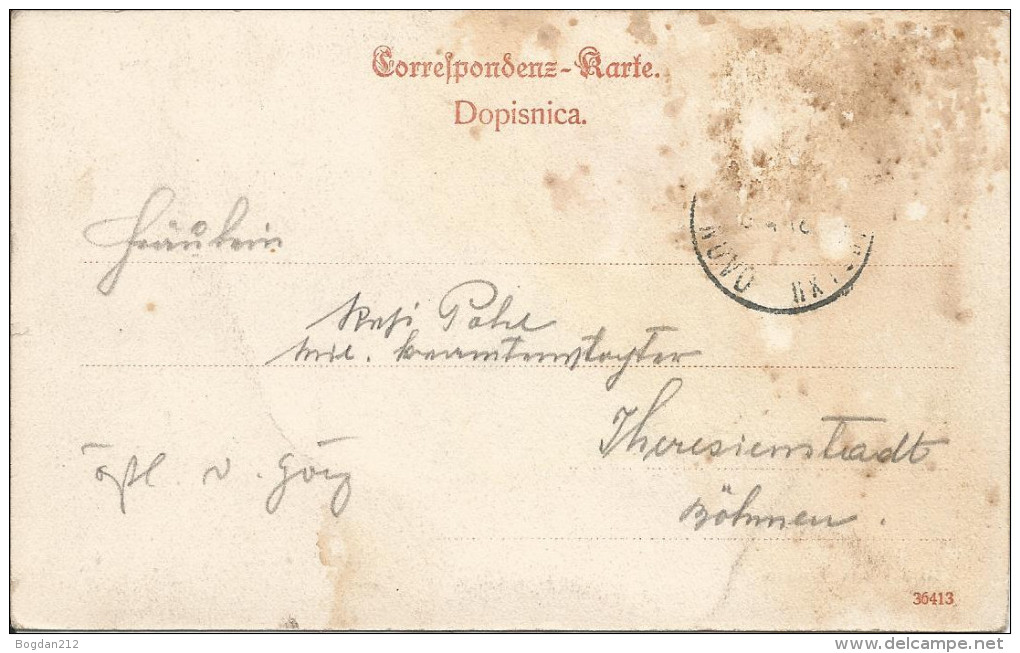 Correspondenz-Karte.
Dopisnica.
Fräulein
Resi Pohl
Mil. beamtenstochter
Theresienstadt
östl. v. Görz
Böhmen.
36413
Bogdan212
delcampe.net